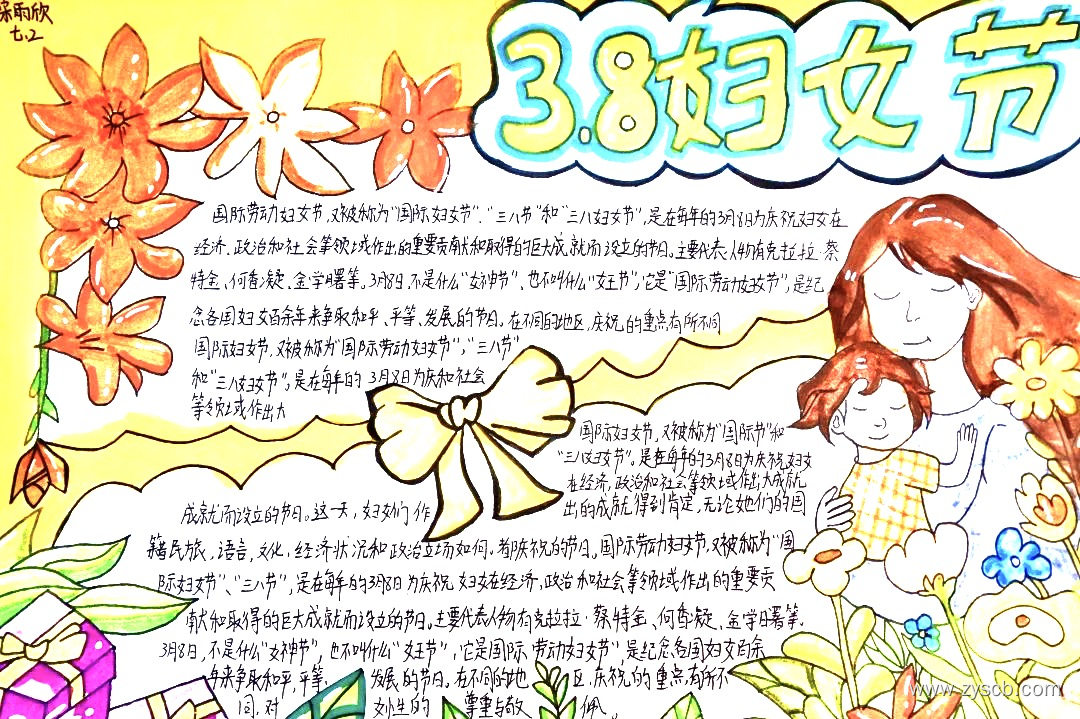 梁雨欣
七.2
3.8妇女节
国际劳动妇女节,又被称为“国际妇女节”、“三八节”和“三八妇女节”,是在每年的3月8日为庆祝妇女在
经济、政治和社会等领域作出的重要贡献和取得的巨大成就而设立的节日。主要代表人物有克拉拉·蔡
特金、何香凝、金学曙等。3月8日,不是什么“女神节”、也不叫什么“女王节”,它是“国际劳动妇女节”,是纪
念各国妇女百余年来争取和平、平等、发展的节日。在不同的地区,庆祝的重点有所不同
国际妇女节,又被称为“国际劳动妇女节”,“三八节”
和“三八妇女节”。是在每年的 3月8日为庆和社会
等领域作出大
国际妇女节,又被称为“国际节”和
“三八妇女节”。是在每年的3月8日为庆祝妇女
在经济,政治和社会等领域作出大成就
出的成就得到肯定,无论她们的国
成就而设立的节日。这一天,妇女们作
籍民族,语言,文化,经济状况和政治立场如何。都庆祝的节日。国际劳动妇女节,又被称为“国
际妇女节”、“三八节”,是在每年的3月8日为庆祝妇女在经济、政治和社会等领域作出的重要贡
献和取得的巨大成就而设立的节日。主要代表人物有克拉拉·蔡特金、何香凝、金学曙等.
3月8日,不是什么“女神节”,也不叫什么“女王节”,它是国际劳动妇女节”,是纪念各国妇女百余
年来争取和平,平等, 发展的节日。在不同的地 区,庆祝的重点有所不
同,对 女性的 尊重与敬 佩。
www.zyscb.com